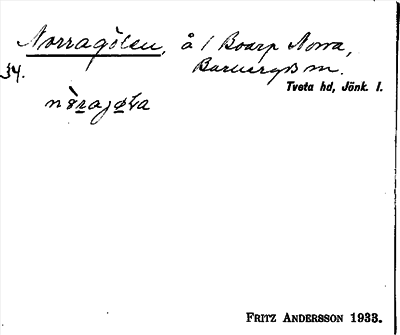 Norragölen, å 1 Boarp Norra,
34. Barnarps sn.
Tveta hd, Jönk. l.
FRITZ ANDERSSON 1933.